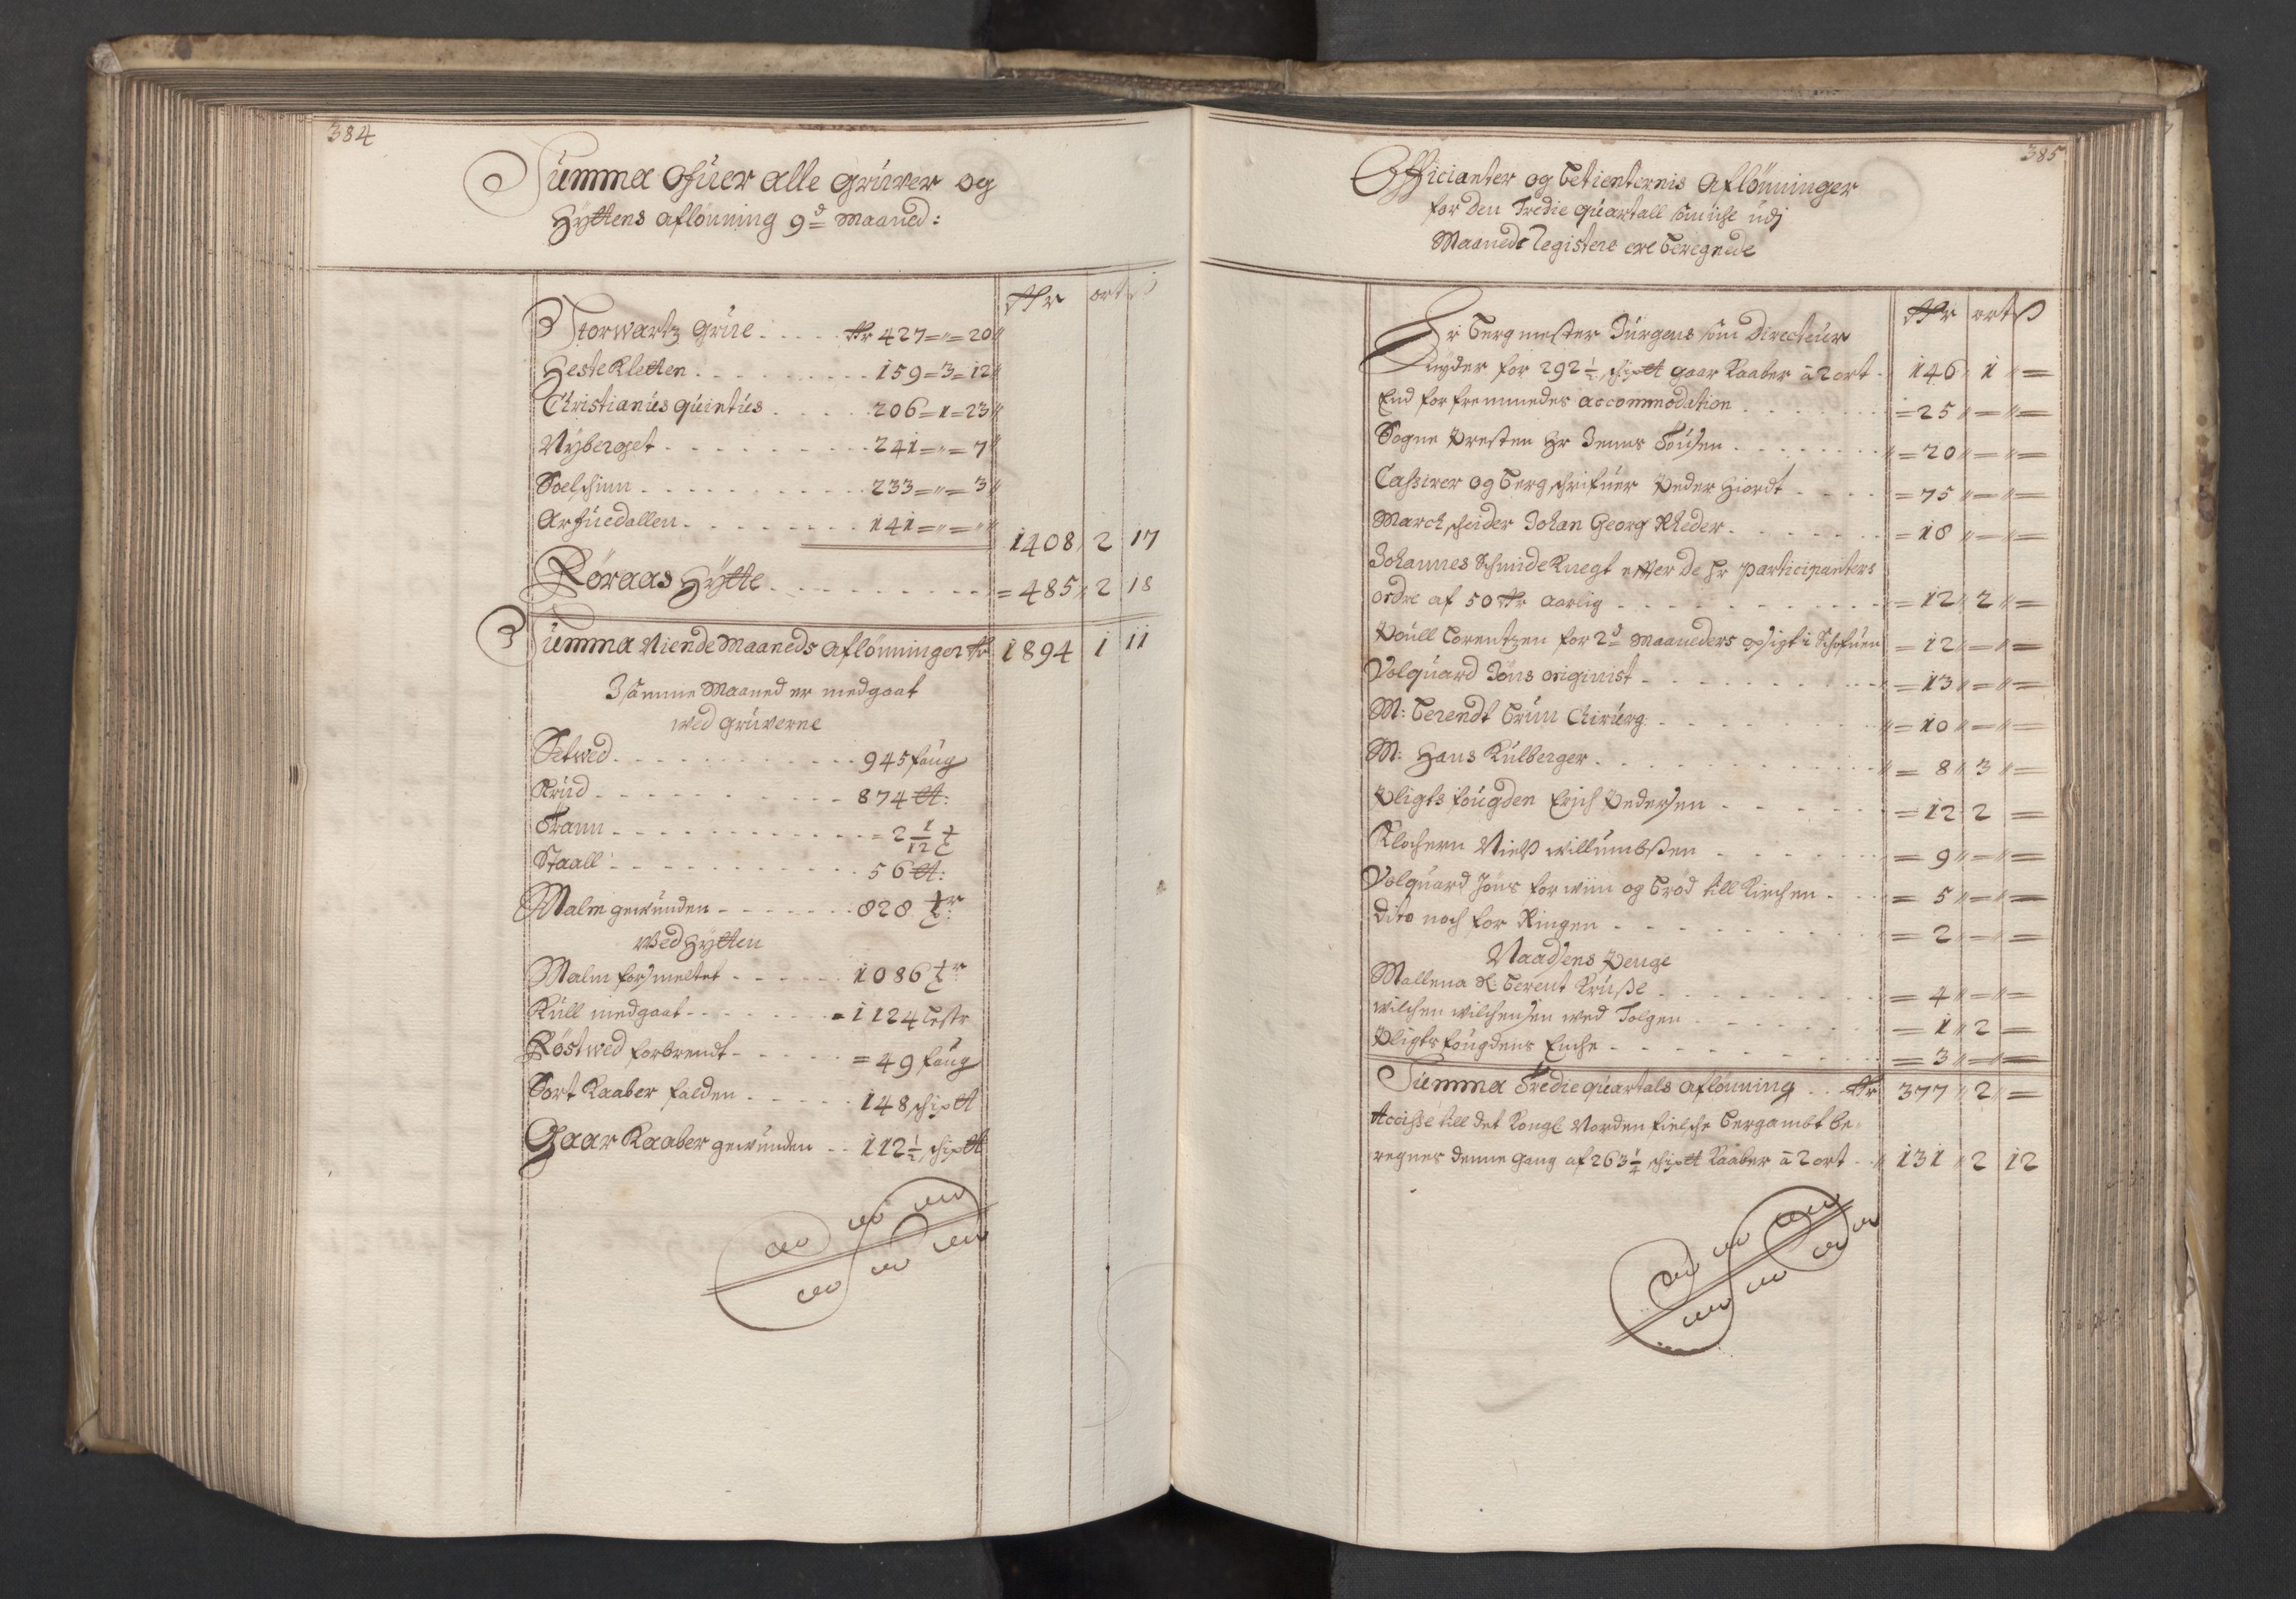 384
Summa Ofuer alle Gruver og
Hyttens aflönning 9d Maaned:
Rdr ort ß
Storwartz Grue . . . . Rdr 427 = " = 20
Hestekletten . . . . 159 = 3 = 12
Christianus Quintus . . . . 206 = 1 = 23
Nyberget . . . . 241 = " = 7
Soelschinn . . . . 233 = " = 3
Arfuedallen . . . . 141 = " = "
1408 2 17
Röraas Hytte . . . . = 485 2 18
Summa Niende Maaneds Aflönninger Rdr 1894 1 11
I samme Maaned er medgaat
wed gruverne
Setwed . . . . 945 faug
Krud . . . . 874 ℔:
Trann . . . . = 2 1/12 t
Staall . . . . 56 ℔:
Malm gewunden . . . . 828 tr:
Wed Hytten
Malm forsmeltet . . . . 1086 tr:
Kull medgaat . . . . = 1124 Lestr
Röstwed forbrendt . . . . = 49 faug
Sort Kaaber falden . . . . 148 schip℔
Gaar Kaaber gewunden . . 112 1/2 schip℔
385
Officianter og betienternis Aflönninger
for den Tredie quartall som iche udj
Maaneds Registere ere beregnede
Rdr ort ß
Hr bergmester Jürgens som Directeur
nyder for 292 1/2 schip℔ gaar Kaaber à 2 ort . 146 1 " =
End for fremmedes accommodation . . . . = 25 " = " =
Sogne Presten Hr Jenns Tousen . . . . = 20 " = " =
Cassirer og bergschrifuer Peder Hiordt . . . . = 75 " = " =
Marckscheider Johan Georg Rheder . . . . = 18 " = " =
Johannes Schmideknegt efter de Hr Participanters
ordre af 50 Rdr aarlig . . . . = 12 " 2 " =
Poull Lorentzen for 2d Maaneders opsigt i Schofuen = 12 " = " =
Volquard Jöns originist . . . . = 13 " = " =
M: berendt brun Chirurg: . . . . = 10 " = " =
M: Hans Kulberger . . . . = 8 " 3 " =
Pligts fougden Erich Pedersen . . . . = 12 2 =
Klochern Nielß Willumbsßen . . . . = 9 " = " =
Volquard Jöns for wiin og bröd till Kirchen . . = 5 " = " =
dito noch for Ringen . . . . = 2 " = " =
Naadsens Penge
Mallena Sl: berent Kruße . . . . = 4 " = " =
Wilchen Wilchensen wed Tolgen . . . . = 1 " 2 " =
Pligtsfougdens Enche . . . . = 3 " = " =
Summa Tredie quartals aflönning . . Rdr 377 " 2 " =
Accisse till det Kongl Nordenfielsche bergambt be-
regnes denne gang af 263 1/4 schip℔ Kaaber à 2 ort . 131 " 2 12